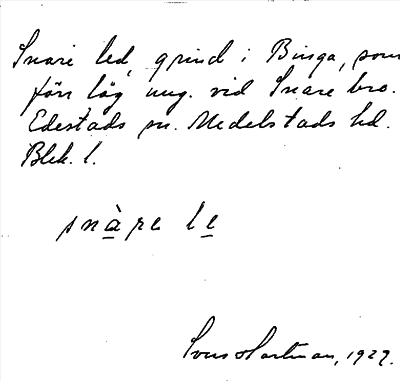 Snare led, grind i Binga, som
förr låg ung. vid Snare bro.
Edestads sn. Medelstads hd.
Blek. l.
snàre le
Sven Hartman, 1927.